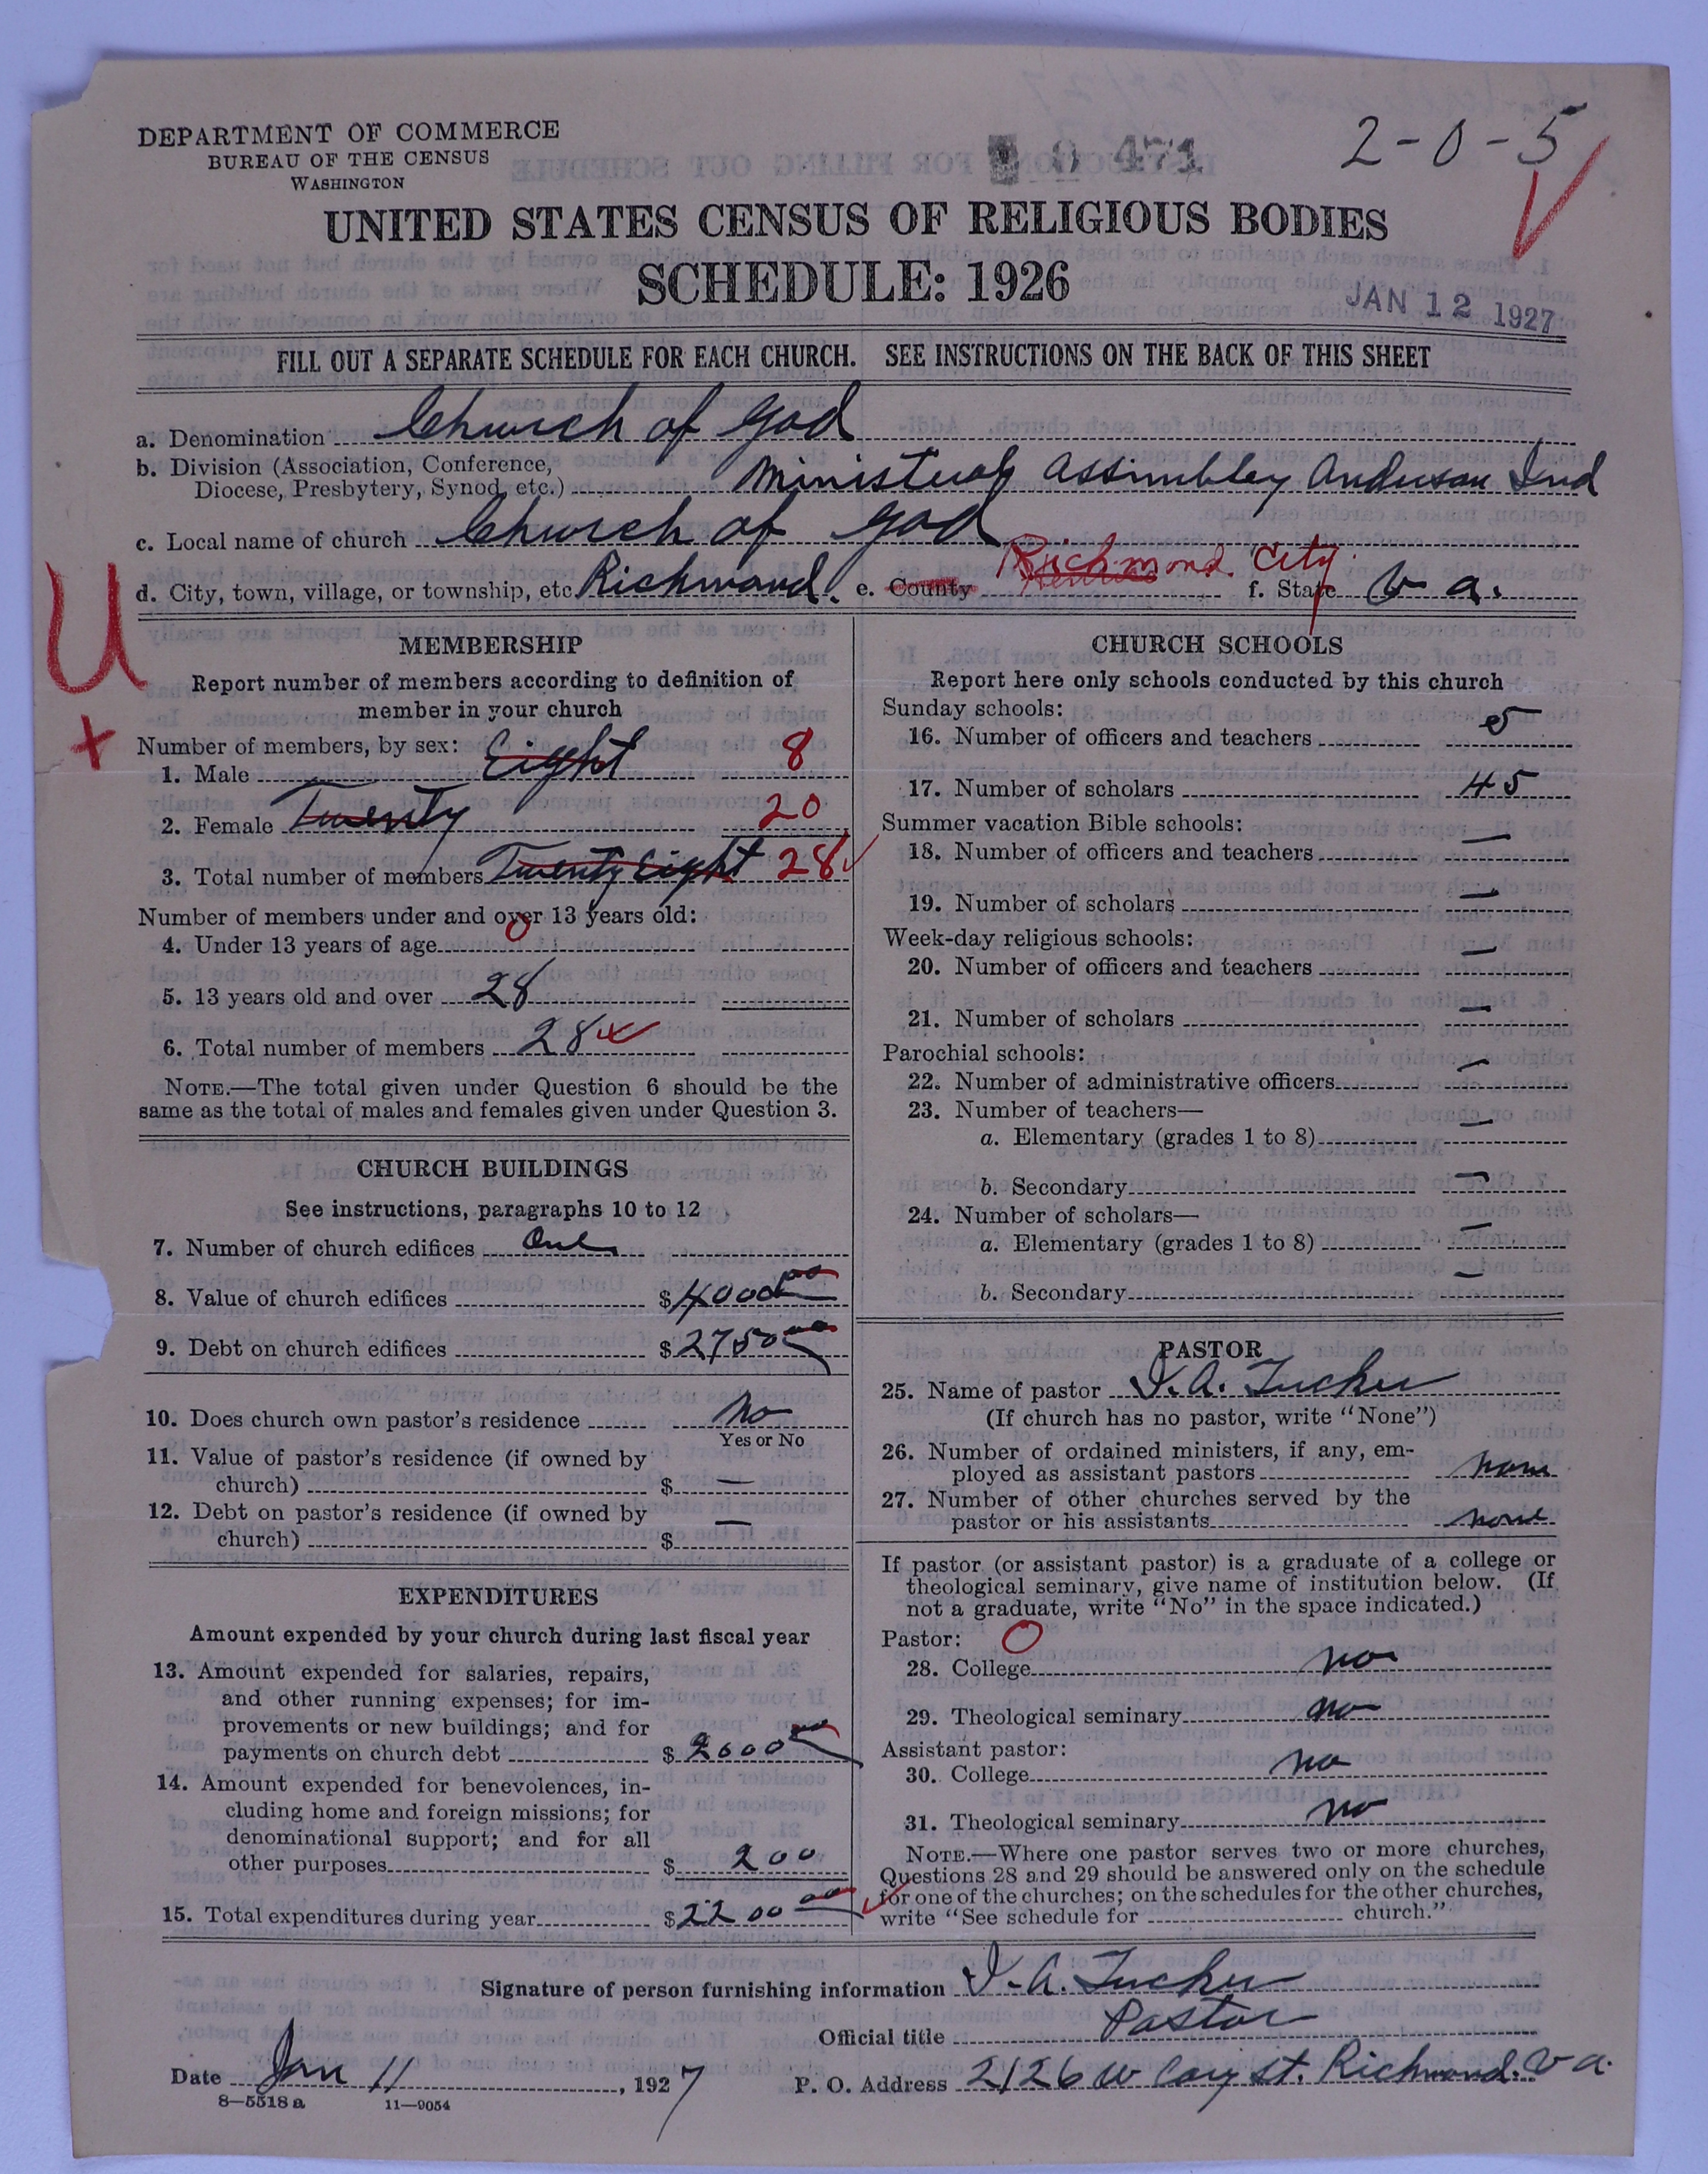 DEPARTMENT OF COMMERCE
BUREAU OF THE CENSUS
WASHINGTON
471
2-0-5
UNITED STATES CENSUS OF RELIGIOUS BODIES
SCHEDULE: 1926
JAN 12 1927
FILL OUT A SEPARATE SCHEDULE FOR EACH CHURCH. SEE INSTRUCTIONS ON THE BACK OF THIS SHEET
a. Denomination Church of God
b. Division (Association, Conference, Diocese, Presbytery, Synod, etc.) Ministerial Assimbley Anderson Ind
c. Local name of church Church of God
d. City, town, village, or township, etc. Richmond. e. County Richmond City f. State Va.
U
+
MEMBERSHIP
Report number of members according to definition of
member in your church
Number of members, by sex:
1. Male Eight 8
2. Female Twenty 20
3. Total number of members Twenty Eight 28
Number of members under and over 13 years old:
4. Under 13 years of age 0
5. 13 years old and over 28
6. Total number of members 28
NOTE.—The total given under Question 6 should be the
same as the total of males and females given under Question 3.
CHURCH BUILDINGS
See instructions, paragraphs 10 to 12
7. Number of church edifices One
8. Value of church edifices $4000 00
9. Debt on church edifices $2750 00
10. Does church own pastor's residence No
Yes or No
11. Value of pastor's residence (if owned by
church) $ —
12. Debt on pastor's residence (if owned by
church) $ —
EXPENDITURES
Amount expended by your church during last fiscal year
13. Amount expended for salaries, repairs,
and other running expenses; for im-
provements or new buildings; and for
payments on church debt $ 2000
14. Amount expended for benevolences, in-
cluding home and foreign missions; for
denominational support; and for all
other purposes $ 200
15. Total expenditures during year $2200 00
CHURCH SCHOOLS
Report here only schools conducted by this church
Sunday schools:
16. Number of officers and teachers 5
17. Number of scholars 45
Summer vacation Bible schools:
18. Number of officers and teachers —
19. Number of scholars —
Week-day religious schools:
20. Number of officers and teachers —
21. Number of scholars —
Parochial schools:
22. Number of administrative officers —
23. Number of teachers—
a. Elementary (grades 1 to 8) —
b. Secondary —
24. Number of scholars—
a. Elementary (grades 1 to 8) —
b. Secondary —
PASTOR
25. Name of pastor I. A. Tucker
(If church has no pastor, write "None")
26. Number of ordained ministers, if any, em-
ployed as assistant pastors none
27. Number of other churches served by the
pastor or his assistants none
If pastor (or assistant pastor) is a graduate of a college or
theological seminary, give name of institution below. (If
not a graduate, write "No" in the space indicated.)
Pastor: O
28. College no
29. Theological seminary no
Assistant pastor:
30. College no
31. Theological seminary no
NOTE.—Where one pastor serves two or more churches,
Questions 28 and 29 should be answered only on the schedule
for one of the churches; on the schedules for the other churches,
write "See schedule for church."
Signature of person furnishing information I. A. Tucker
Official title Pastor
Date Jan 11, 1927 P. O. Address 2126 W Cary St. Richmond. Va.
8—5518 a 11—9054